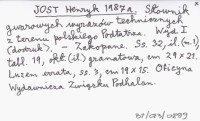 JOST Henryk 1987a, Słownik
gwarowych wyrazów technicznych
z terenu polskiego Podtatrza. Wyd. I
(dodruk). - Zakopane. Ss. 32, il. (m.1),
tabl. 19, okł. (il.) granatowa, cm 29 x 21.
Luzem errata, ss. 3, cm 19 x 15. Oficyna
Wydawnicza Związku Podhalan.